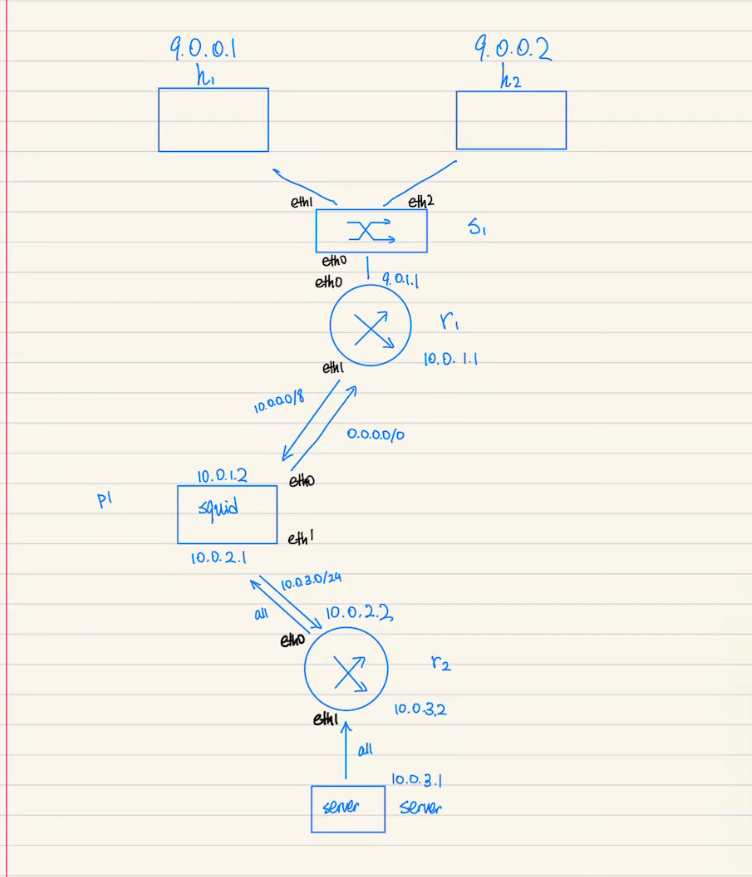 9.0.0.1
9.0.0.2
h1
h2
eth1
eth2
S1
eth0
eth0
9.0.1.1
r1
10.0.1.1
eth1
10.0.0.0/8
0.0.0.0/0
10.0.1.2
eth0
p1
squid
eth1
10.0.2.1
10.0.3.0/24
all
10.0.2.2
eth0
r2
10.0.3.2
eth1
all
10.0.3.1
server
server